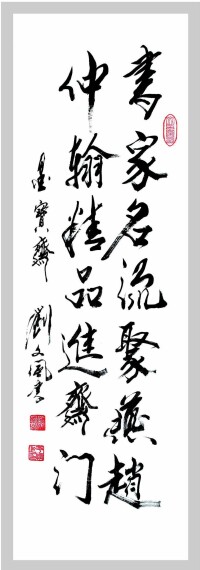 書家名流聚燕趙
仲翰精品進齋门
墨寶齋
劉文国書